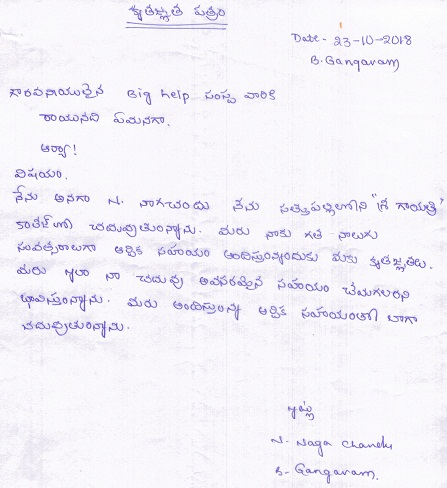 కృతజ్ఞత పత్రం
Date - 23-10-2018
B. Gangaram
గౌరవనీయులైన Big help సంస్థ వారికి
రాయునది ఏమనగా.
ఆర్యా!
విషయం.
నేను అనగా N. నాగచందు నేను సత్తుపల్లిలోని "శ్రీ గాయత్రి"
కాలేజ్‌లో చదువుతున్నాను. మరు నాకు గత నాలుగు
సంవత్సరాలుగా ఆర్థిక సహయం అందిస్తున్నందుకు మకు కృతజ్ఞతలు.
మరు ఇలా నా చదువు అవసరమైన సహయం చేయగలరని
భావిస్తున్నాను. మరు అందిస్తున్న ఆర్థిక సహయంతో బాగా
చదువుతున్నాను.
ఇట్లు
N. Naga chandu
B- Gangaram.